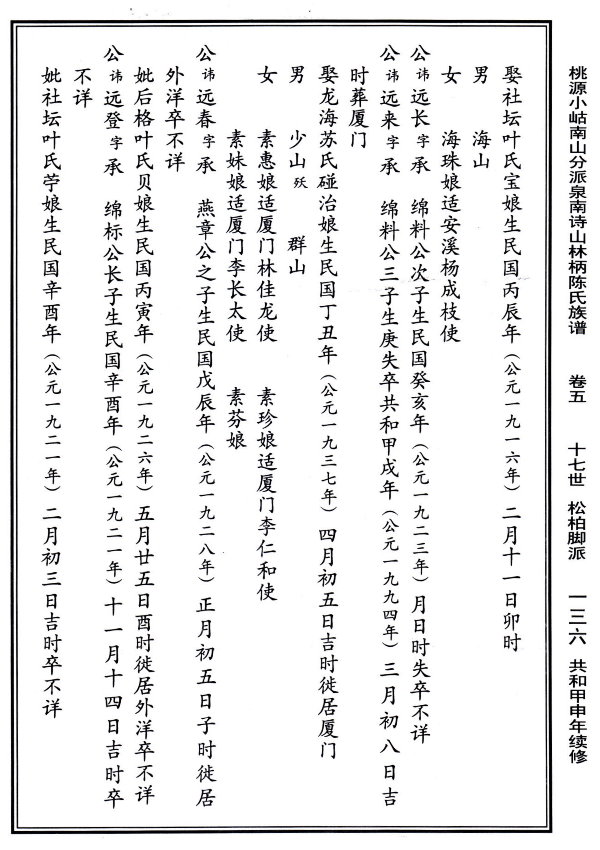 桃源小岵南山分派泉南诗山林柄陈氏族谱 卷五 十七世 松柏脚派 一三六 共和甲申年续修
娶社坛叶氏宝娘生民国丙辰年（公元一九一六年）二月十一日卯时
男 海山
女 海珠娘适安溪杨成枝使
公讳远长字承 绵料公次子生民国癸亥年（公元一九二三年）月日时失卒不详
公讳远来字承 绵料公三子生庚失卒共和甲戌年（公元一九九四年）三月初八日吉
时葬厦门
娶龙海苏氏碰治娘生民国丁丑年（公元一九三七年）四月初五日吉时徙居厦门
男 少山殀 群山
女 素惠娘适厦门林佳龙使 素珍娘适厦门李仁和使
素妹娘适厦门李长太使 素芬娘
公讳远春字承 燕章公之子生民国戊辰年（公元一九二八年）正月初五日子时徙居
外洋卒不详
妣后格叶氏贝娘生民国丙寅年（公元一九二六年）五月廿五日酉时徙居外洋卒不详
公讳远登字承 绵标公长子生民国辛酉年（公元一九二一年）十一月十四日吉时卒
不详
妣社坛叶氏苧娘生民国辛酉年（公元一九二一年）二月初三日吉时卒不详